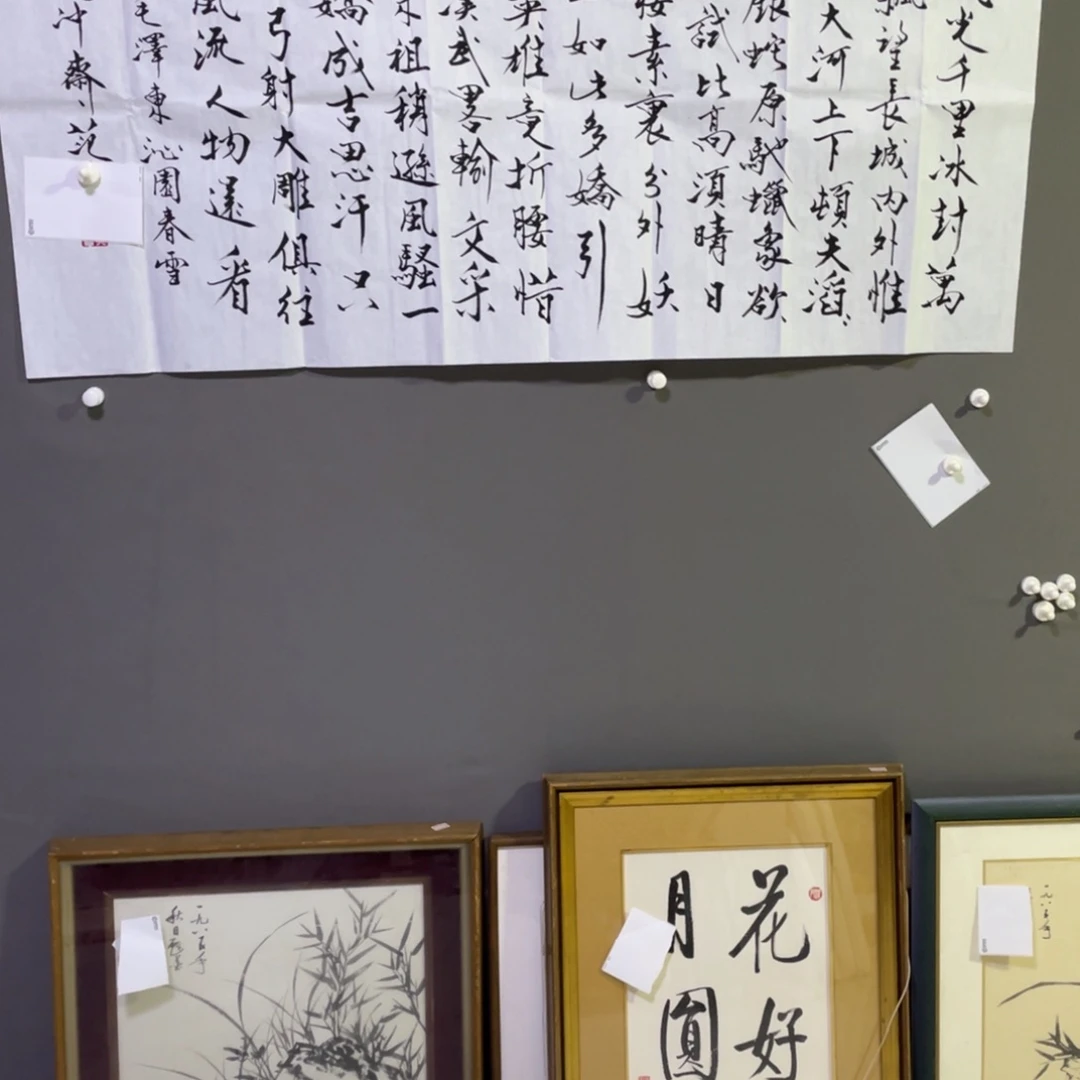 光千里冰封萬
飄望長城内外惟
大河上下頓失滔〻
銀蛇原馳蠟象欲
試比高須晴日
素裹分外妖
如此多嬌引
英雄竞折腰惜
漢武畧輸文采
祖稍遜風騷一
嬌成吉思汗只
弓射大雕俱往
風流人物還看
毛澤東沁園春雪
冲齋范
一九八五年
秋日
花好
月圓
一九八五年